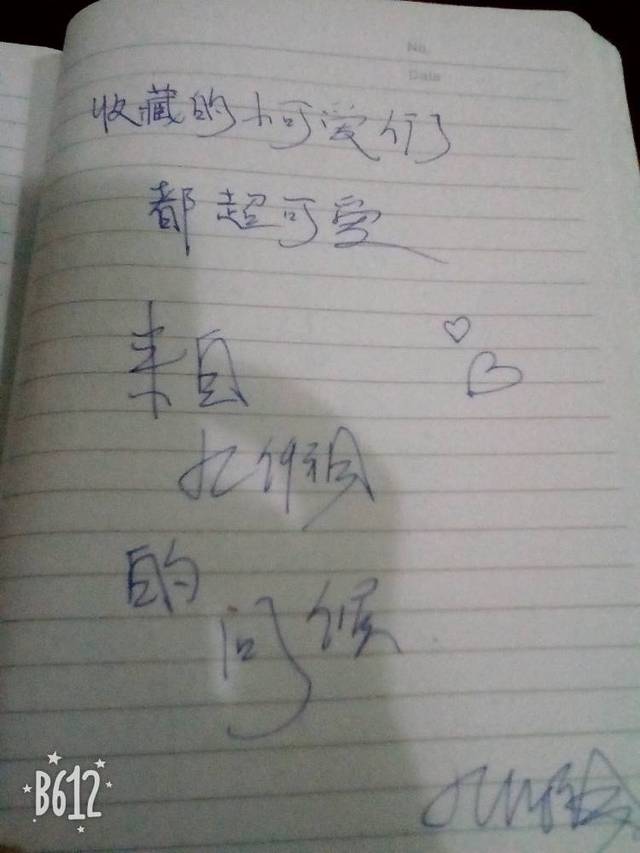 No.
Date
收藏的小可爱们
都超可爱
来自
的
问候
B612